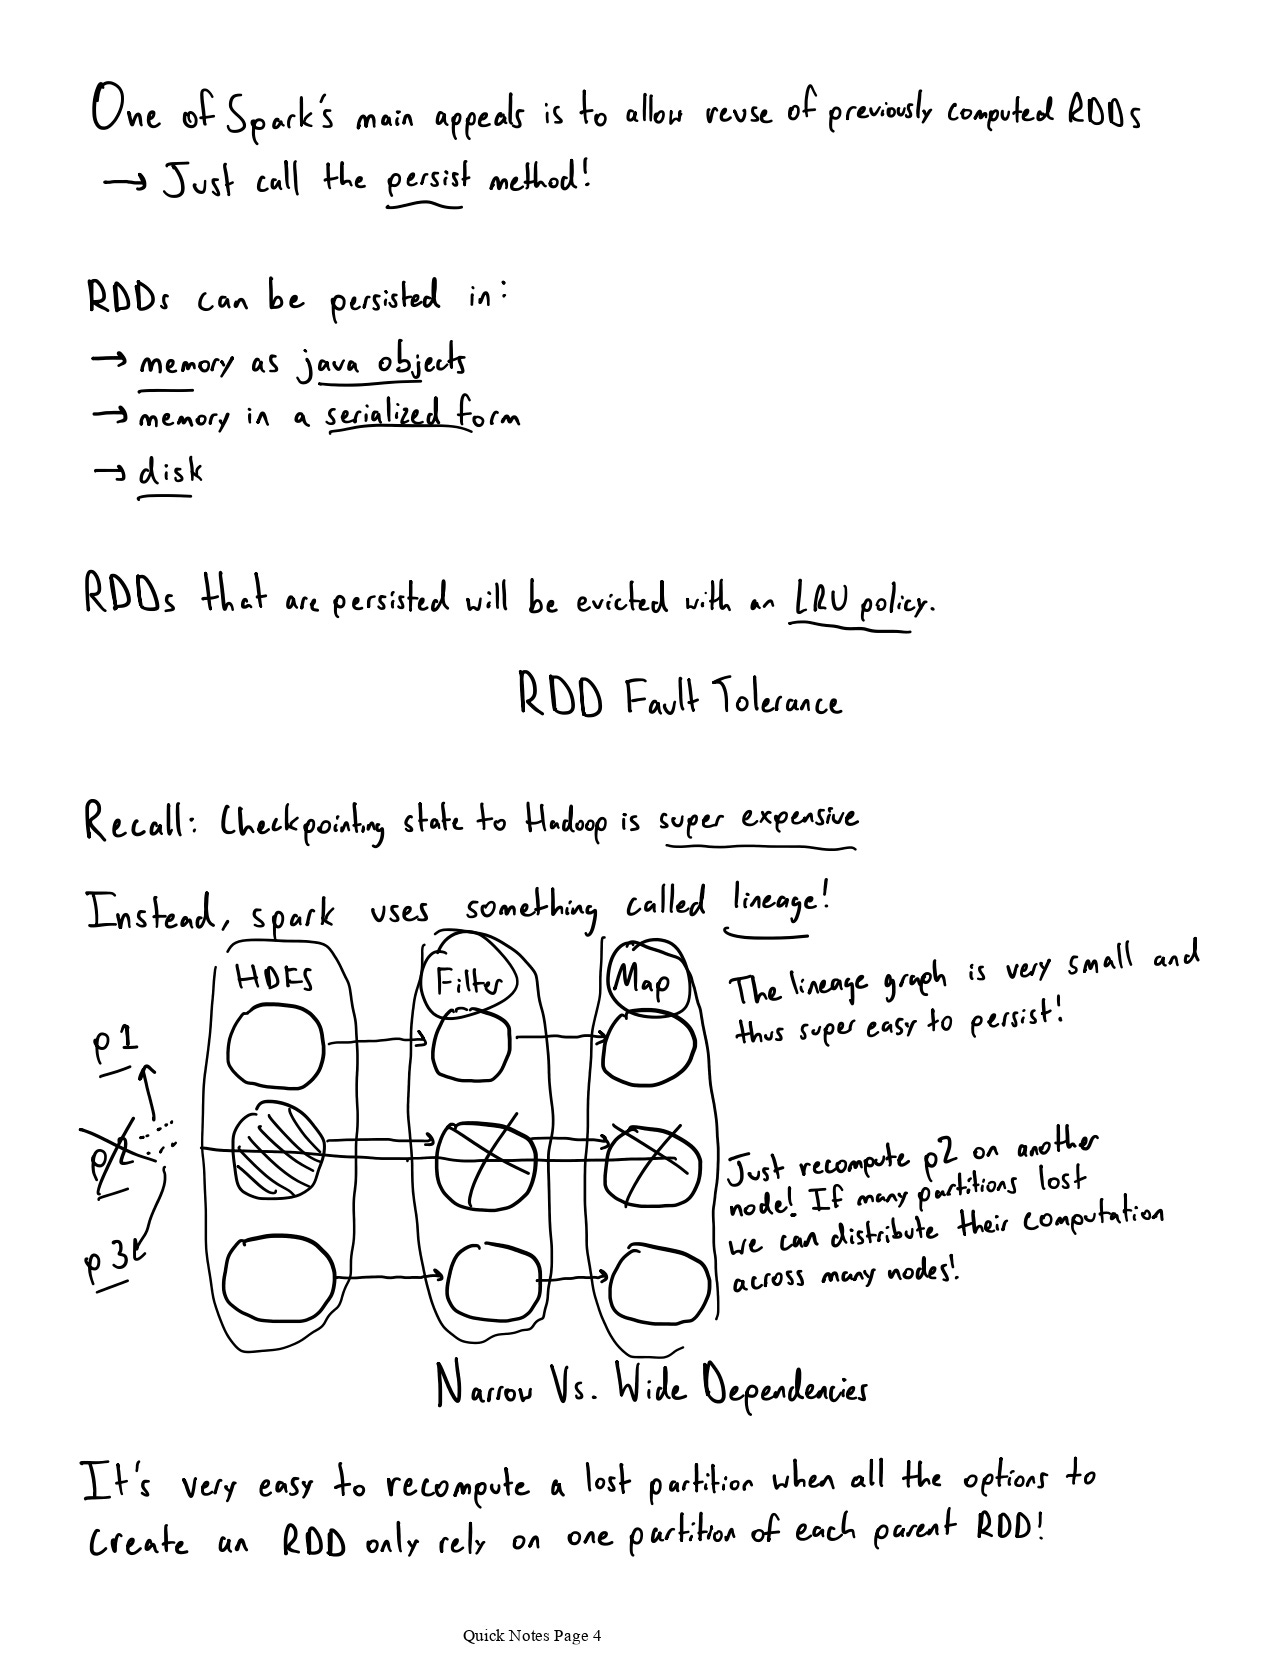 One of Spark's main appeals is to allow reuse of previously computed RDDs
→ Just call the persist method!
RDDs can be persisted in:
→ memory as java objects
→ memory in a serialized form
→ disk
RDDs that are persisted will be evicted with an LRU policy.
RDD Fault Tolerance
Recall: Checkpointing state to Hadoop is super expensive
Instead, spark uses something called lineage!
HDFS Filter Map
The lineage graph is very small and
thus super easy to persist!
p1
p2
p3
Just recompute p2 on another
node! If many partitions lost
we can distribute their computation
across many nodes!
Narrow Vs. Wide Dependencies
It's very easy to recompute a lost partition when all the options to
create an RDD only rely on one partition of each parent RDD!
Quick Notes Page 4